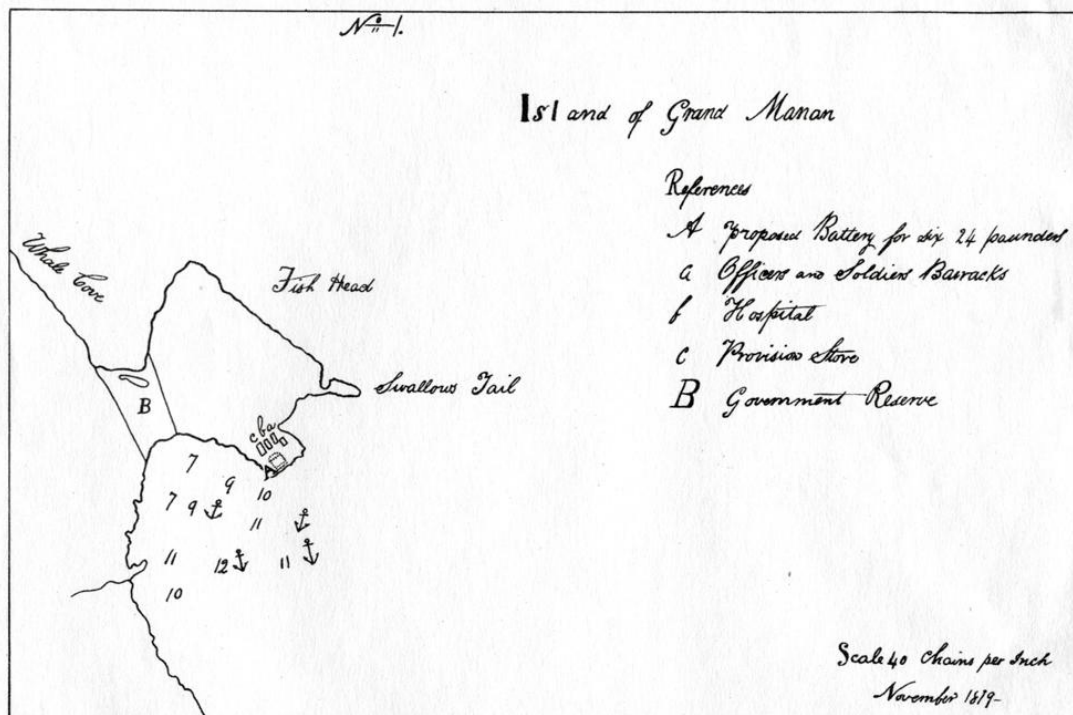 No 1.
Island of Grand Manan
References
A proposed Battery for six 24 pounders
a Officers and Soldiers Barracks
b Hospital
c Provision Store
B Government Reserve
Whale Cove
Fish Head
Swallows Tail
B
c b a
A
7
9 10
7 9 11
11 12 11
10
Scale 40 Chains per Inch
November 1819-